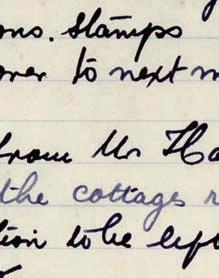 ons. Stamps
over to next m
from Mr Ha
the cottages r
tion to be left